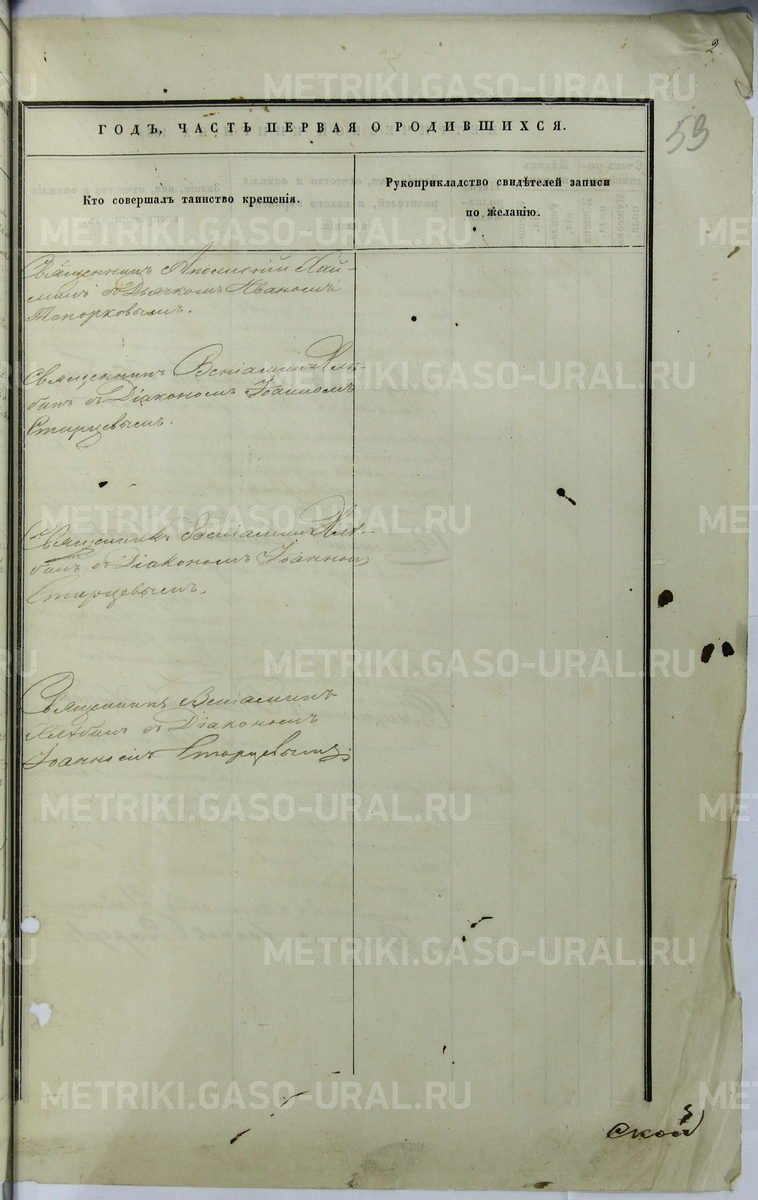 2
59
ГОДЪ, ЧАСТЬ ПЕРВАЯ О РОДИВШИХСЯ.
Кто совершалъ таинство крещенія.
Рукоприкладство свидѣтелей записи
по желанію.
Священникъ
съ Дьячкомъ Иваномъ
Топорковымъ.
Священникъ Веніаминъ Алѣ-
бинъ съ Діакономъ Іоанномъ
Старцевымъ.
Священникъ Веніаминъ Алѣ-
бинъ съ Діакономъ Іоанном
Старцевымъ.
Священникъ Веніаминъ
Алѣбинъ съ Діакономъ
Іоанномъ Старцевымъ
ской
METRIKI.GASO-URAL.RU